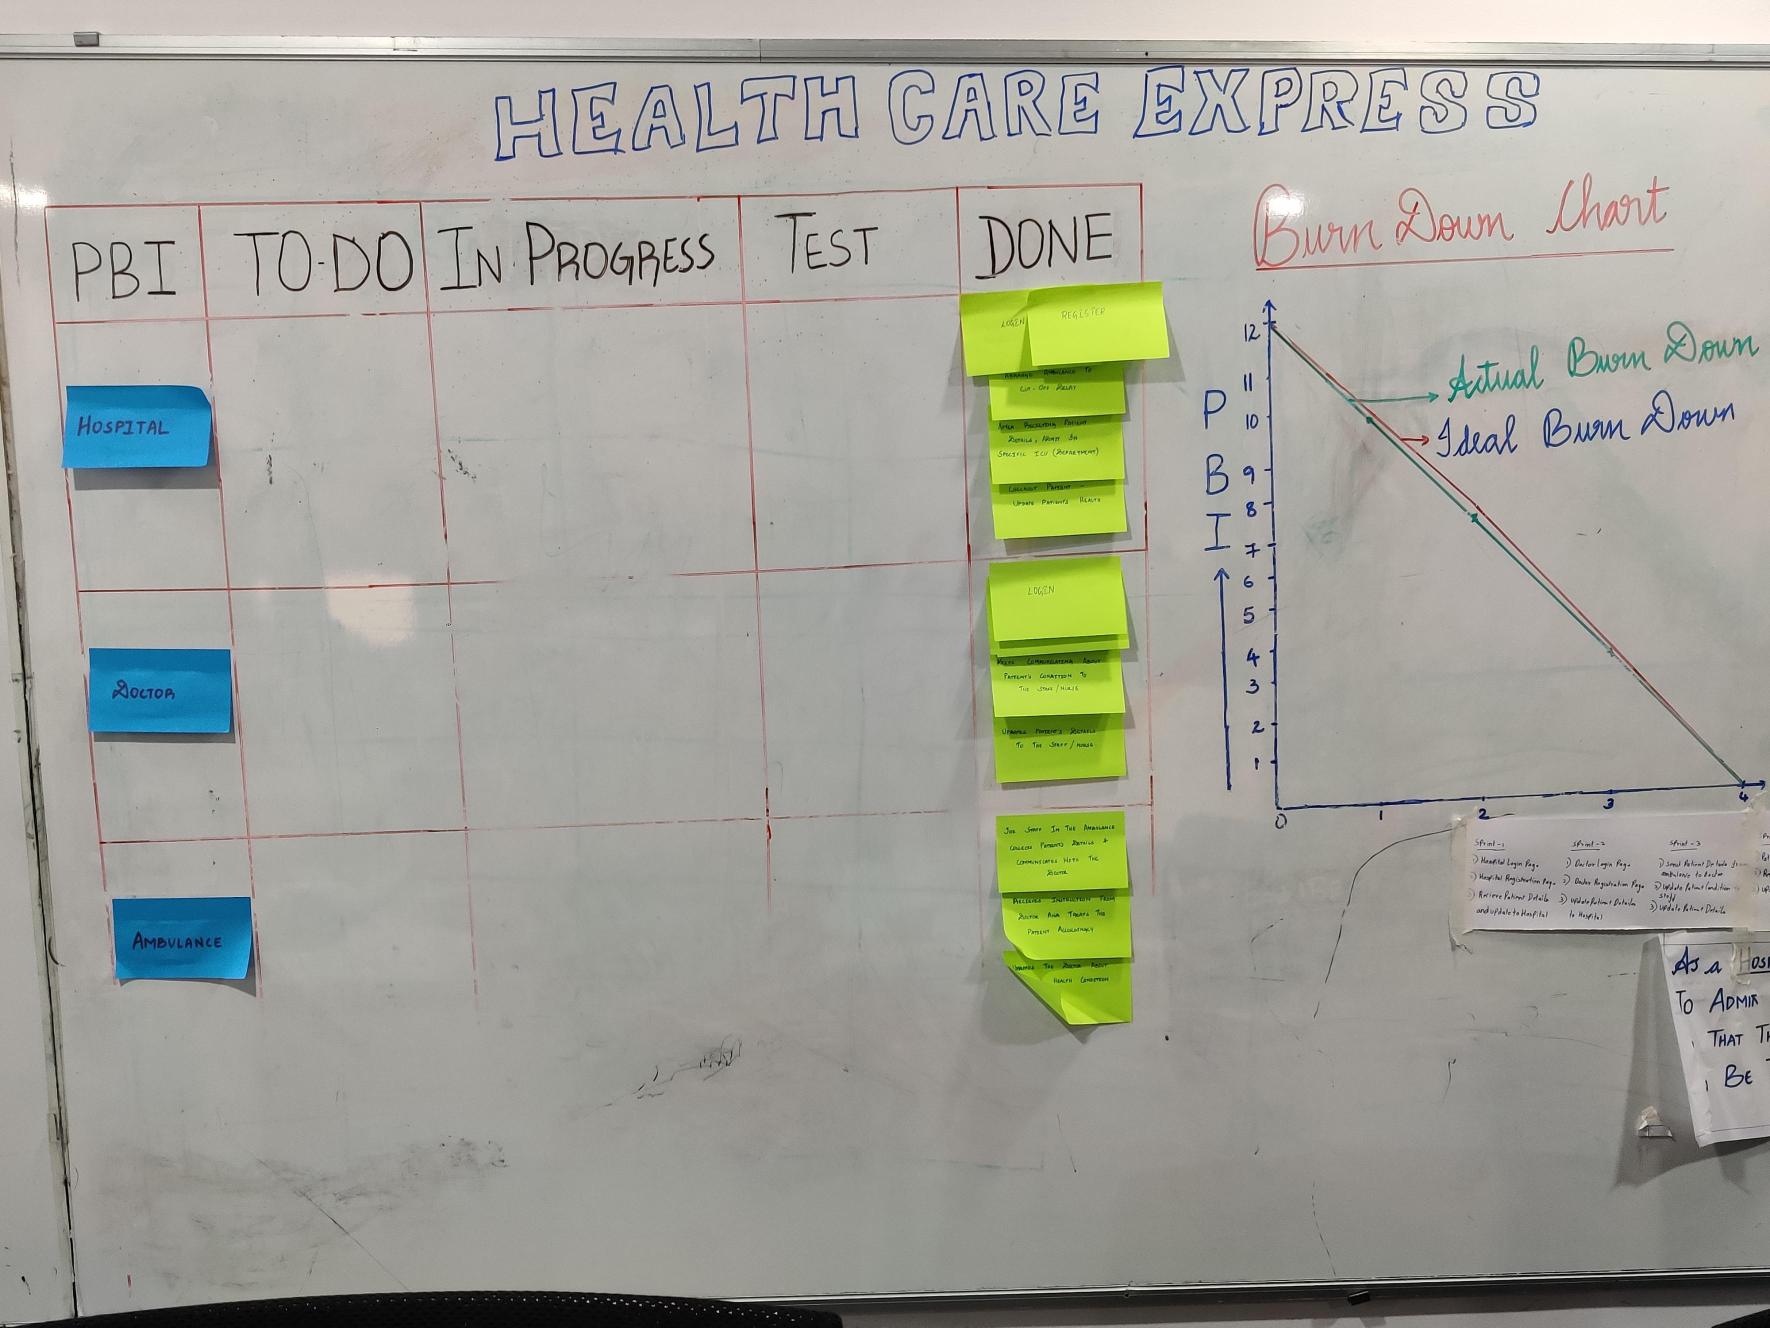 HEALTH CARE EXPRESS
PBI
TO-DO
IN PROGRESS
TEST
DONE
HOSPITAL
DOCTOR
AMBULANCE
LOGIN
REGISTER
AMBULANCE TO
CUT-OFF DELAY
AFTER RECEIVING PATIENT
DETAILS, ADMIT IN
SPECIFIC ICU (DEPARTMENT)
CHECKOUT PATIENT -
UPDATE PATIENTS HEALTH
LOGIN
KEEPS COMMUNICATING ABOUT
PATIENT'S CONDITION TO
THE STAFF/NURSE
UPDATES PATIENT'S DETAILS
TO THE STAFF/NURSE
THE STAFF IN THE AMBULANCE
COLLECTS PATIENTS DETAILS &
COMMUNICATES WITH THE
DOCTOR
RECEIVES INSTRUCTION FROM
DOCTOR AND TREATS THE
PATIENT ACCORDINGLY
UPDATES THE DOCTOR ABOUT
HEALTH CONDITION
Burn Down Chart
Actual Burn Down
Ideal Burn Down
PBI
12
11
10
9
8
7
6
5
4
3
2
1
0 1 2 3 4
Sprint-1
1) Hospital Login Page
2) Hospital Registration Page
3) Recieve Patient Details
and update to Hospital
Sprint-2
1) Doctor Login Page
2) Doctor Registration Page
3) Update Patient Details
to Hospital
Sprint-3
1) Send Patient Details from
ambulance to Doctor
2) Update Patient Condition to
staff
3) Update Patient Details
As a
TO ADMIT
THAT
BE